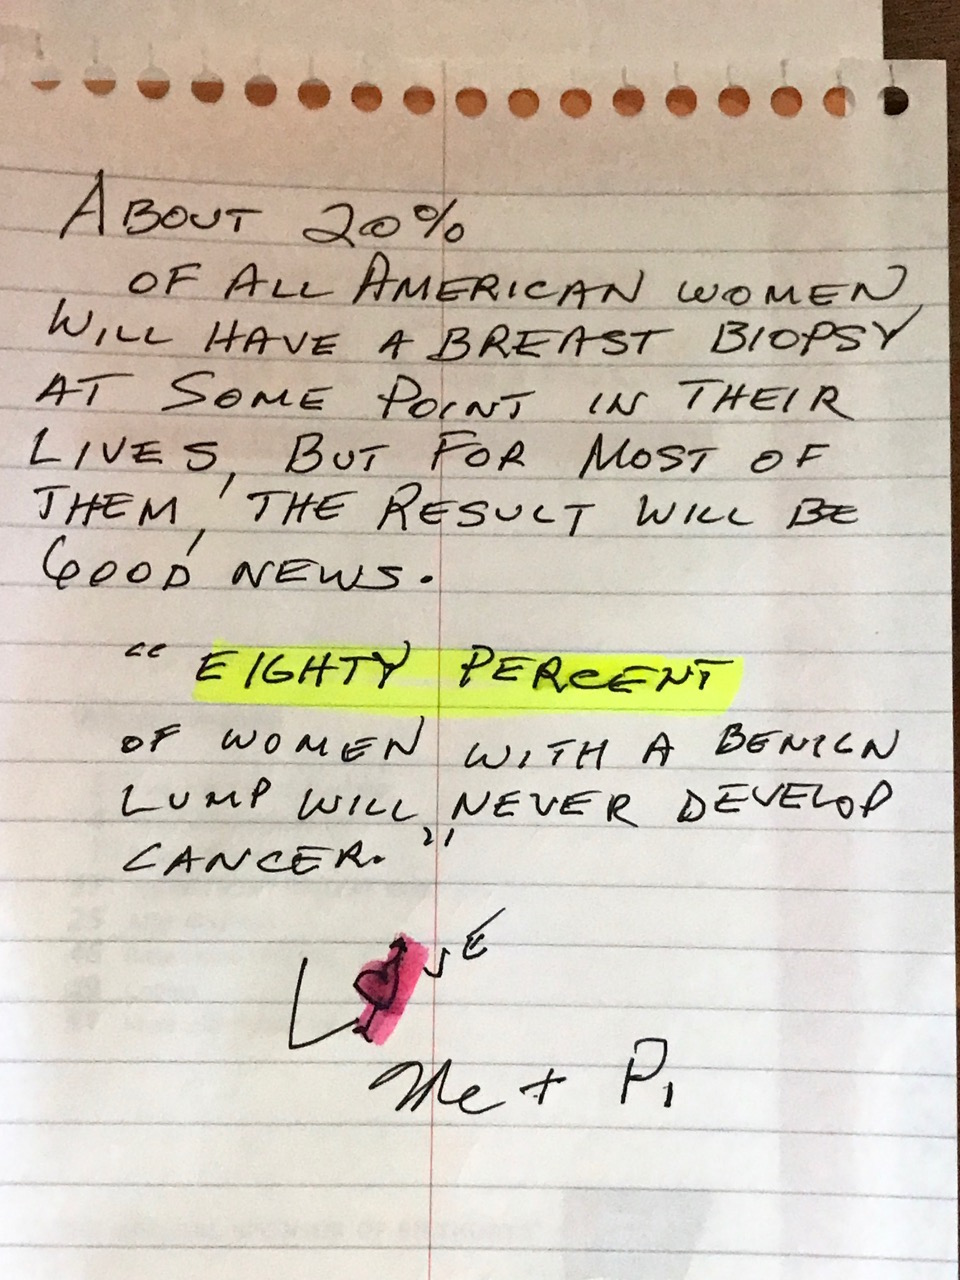 ABOUT 20%
OF ALL AMERICAN WOMEN
WILL HAVE A BREAST BIOPSY
AT SOME POINT IN THEIR
LIVES, BUT FOR MOST OF
THEM, THE RESULT WILL BE
GOOD NEWS.
"EIGHTY PERCENT
OF WOMEN WITH A BENIGN
LUMP WILL NEVER DEVELOP
CANCER."
L♥VE
Me + Pi